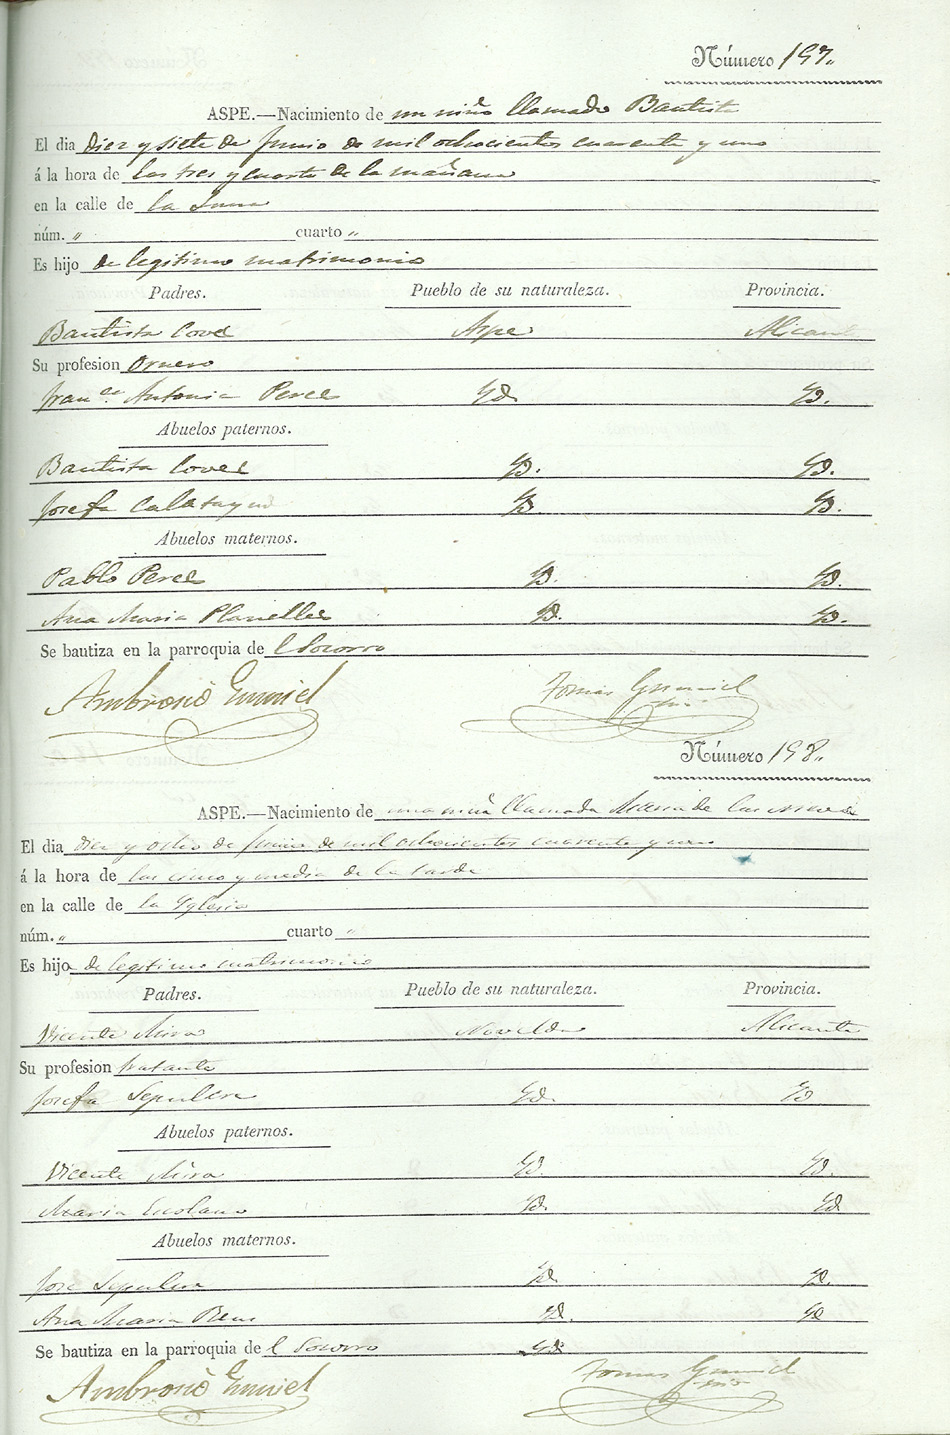 Número 197.
ASPE.—Nacimiento de un niño llamado Bautista
El dia diez y siete de Junio de mil ochocientos cuarenta y uno
á la hora de las tres y cuarto de la mañana
en la calle de la
núm. " cuarto "
Es hijo de legitimo matrimonio
Padres. Pueblo de su naturaleza. Provincia.
Bautista Aspe Alicante
Su profesion Ornero
Fran.ca Antonia Perez Yd. Yd.
Abuelos paternos.
Bautista Yd. Yd.
Josefa Calatayud Yd. Yd.
Abuelos maternos.
Pablo Perez Yd. Yd.
Ana Maria Planelles Yd. Yd.
Se bautiza en la parroquia de l Socorro
Ambrosio Tomas
Número 198.
ASPE.—Nacimiento de una niña llamada Maria de las Nieves
El dia diez y ocho de Junio de mil ochocientos cuarenta y uno
á la hora de las cinco y media de la tarde
en la calle de la Yglesia
núm. " cuarto "
Es hijo de legitimo matrimonio
Padres. Pueblo de su naturaleza. Provincia.
Vicente Mira Novelda Alicante
Su profesion tratante
Josefa Sepulcre Yd. Yd
Abuelos paternos.
Vicente Mira Yd. Yd.
Maria Escolano Yd. Yd.
Abuelos maternos.
José Sepulcre Yd. Yd.
Ana Maria Yd. Yd
Se bautiza en la parroquia de l Socorro Yd.
Ambrosio Tomas